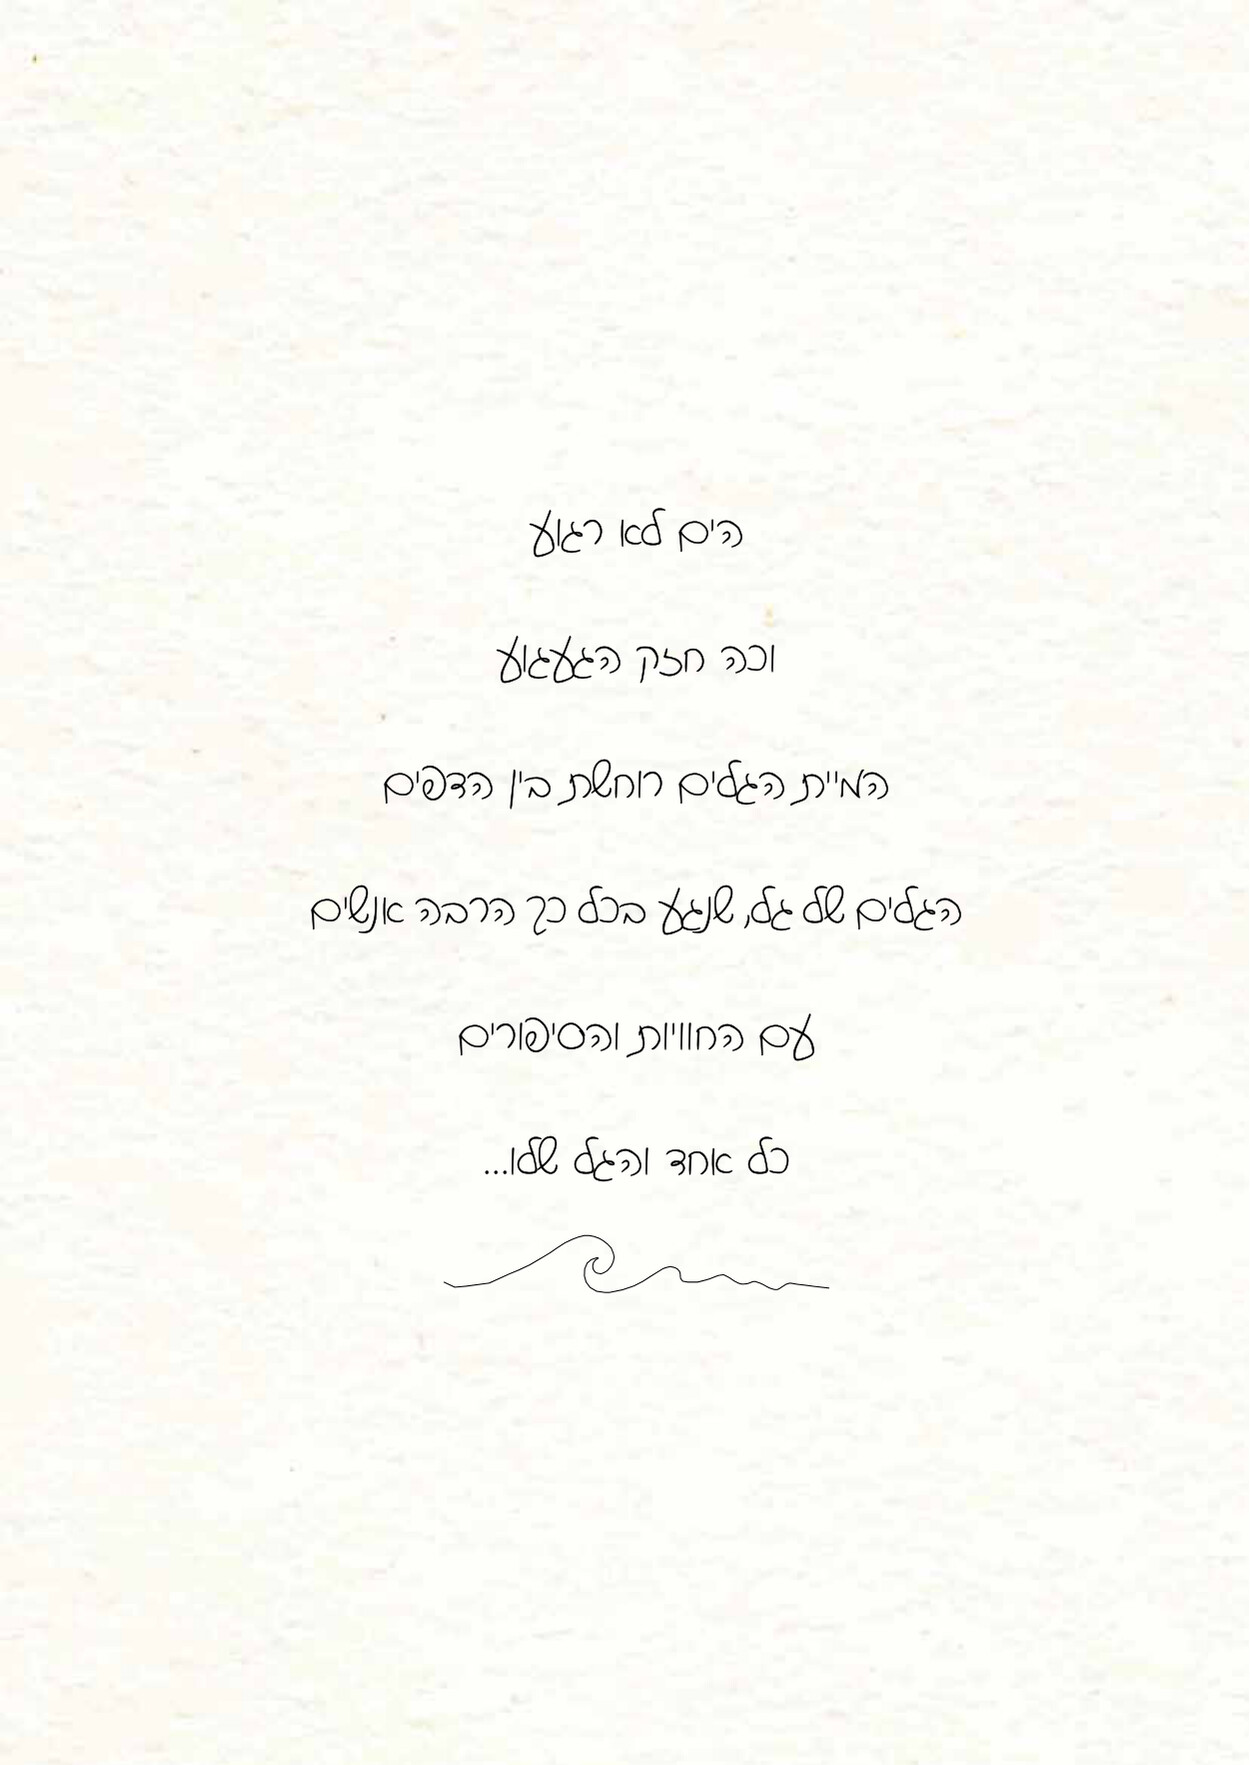 הים לא רגוע
וכה חזק הגעגוע
המיית הגלים רוחשת בין הדפים
הגלים של גל, שנגע בכל כך הרבה אנשים
עם החוויות והסיפורים
כל אחד והגל שלו...